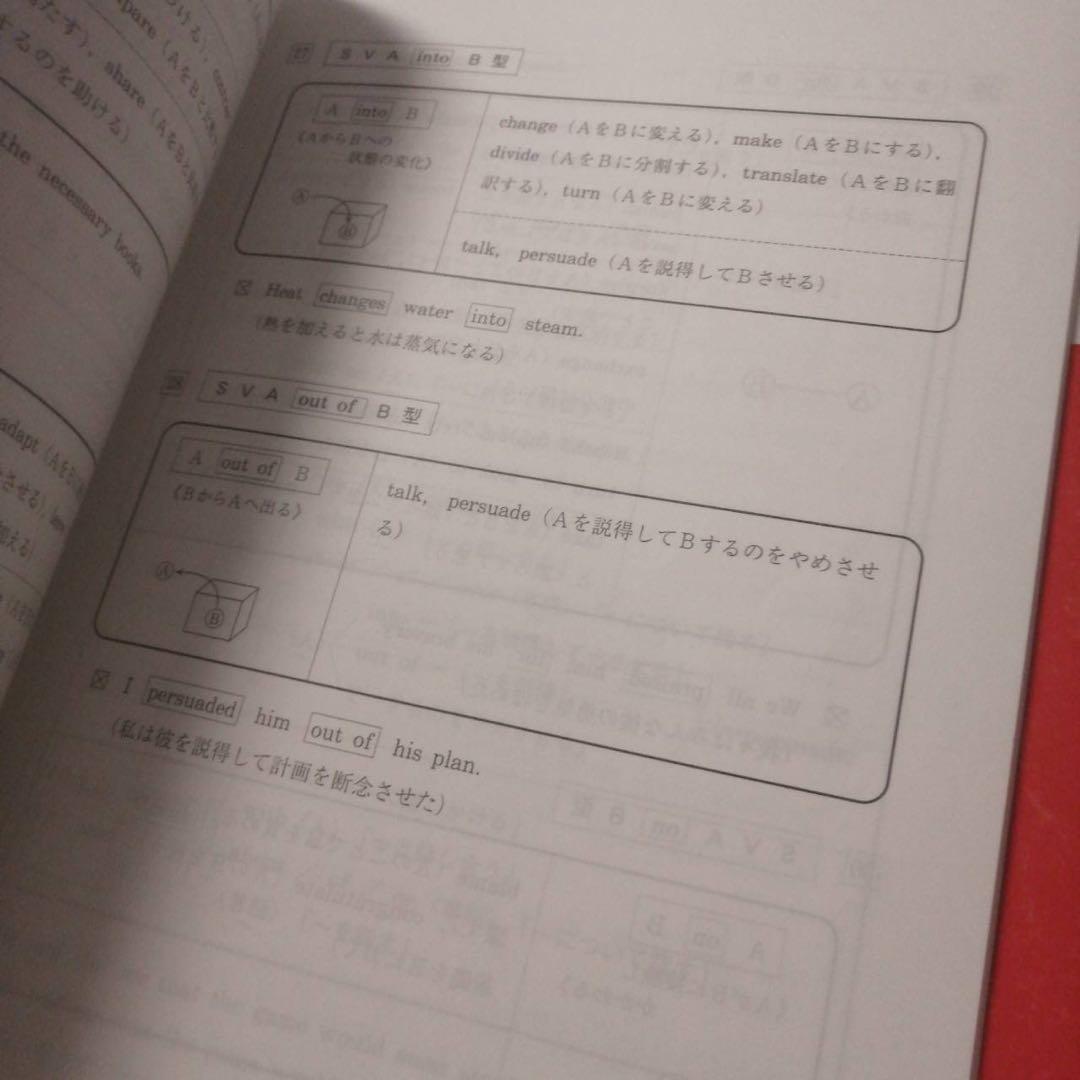 pare (AをBと比
たす), share (AをBと
するのを助ける)
the necessary books.
adapt (AをB
させる),
加える)
27 S V A into B 型
A into B
《AからBへの
状態の変化》
change (AをBに変える), make (AをBにする),
divide (AをBに分割する), translate (AをBに翻
訳する), turn (AをBに変える)
talk, persuade (Aを説得してBさせる)
A
B
Heat changes water into steam.
(熱を加えると水は蒸気になる)
28 S V A out of B 型
A out of B
《BからAへ出る》
talk, persuade (Aを説得してBするのをやめさせ
る)
A
B
I persuaded him out of his plan.
(私は彼を説得して計画を断念させた)